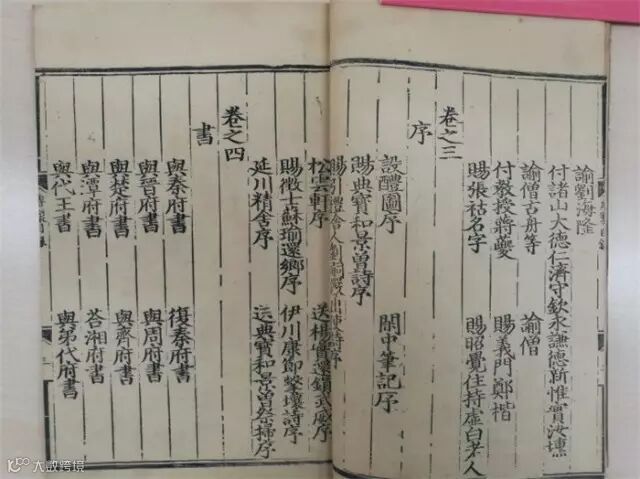 諭劉海隆
付諸山大德仁濟守欽永謙德新惟實汝
諭僧古舟等　諭僧
付教授蔣夔　賜義門鄭楷
賜張祜名字　賜昭覺住持虛白老人
卷之三
序
設醴圖序　關中筆記序
賜典寶和景曽詩序
賜引禮舍人劉
松雲軒序　送楊實還鎮武威序
賜徵士蘇瑜還鄉序　伊川康節擊壤詩序
延川精舍序　送典寶和景曽祭掃序
卷之四
書
與秦府書　復秦府書
與晉府書　與周府書
與楚府書　與齊府書
與潭府書　荅湘府書
與代王書　與弟代府書
大數跨境